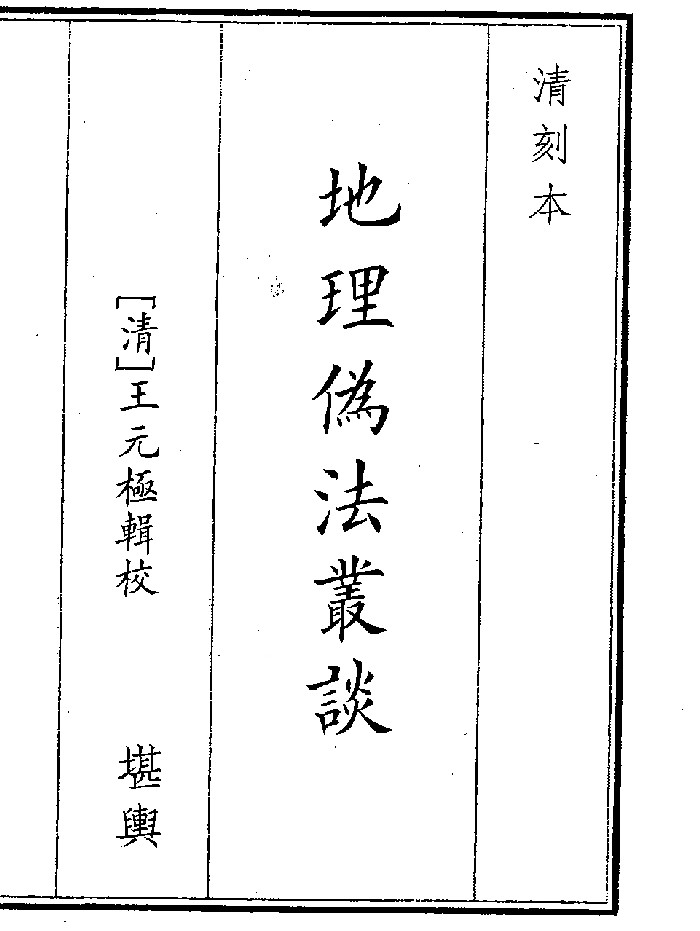 清刻本
地理僞法叢談
[清]王元極輯校
堪輿